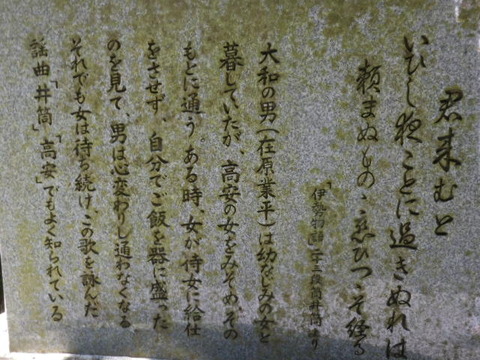 君来むと
いひし夜ことに過きぬれは
頼まぬものゝ恋ひつゝそ経る
「伊勢物語」二十三段筒井筒より
大和の男(在原業平)は幼なじみの女と
暮していたが、高安の女をみそめ、その
もとに通う。ある時、女が侍女に給仕
をさせず、自分でご飯を器に盛った
のを見て、男は心変わりし通わなくなる
それでも女は待ち続け、この歌を詠んだ
謡曲「井筒」「高安」でもよく知られている